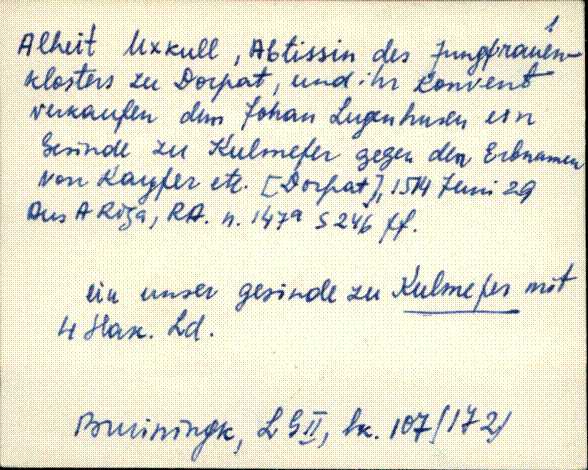 1
Alheit Uxkull, Äbtissin des Jungfrauen-
klosters zu Dorpat, und ihr Konvent
verkaufen dem Johan Lugenhusen ein
Gesinde zu Kulmefer gegen den Erbnamen
von Kayfer etc. [Dorpat], 1514 Juni 29
Aus A Riga, RA. n. 147a S 246 ff.
ein unser gesinde zu Kulmefer mit
4 Hak. Ld.
Bruiningk, LG II, lk. 107 (172)